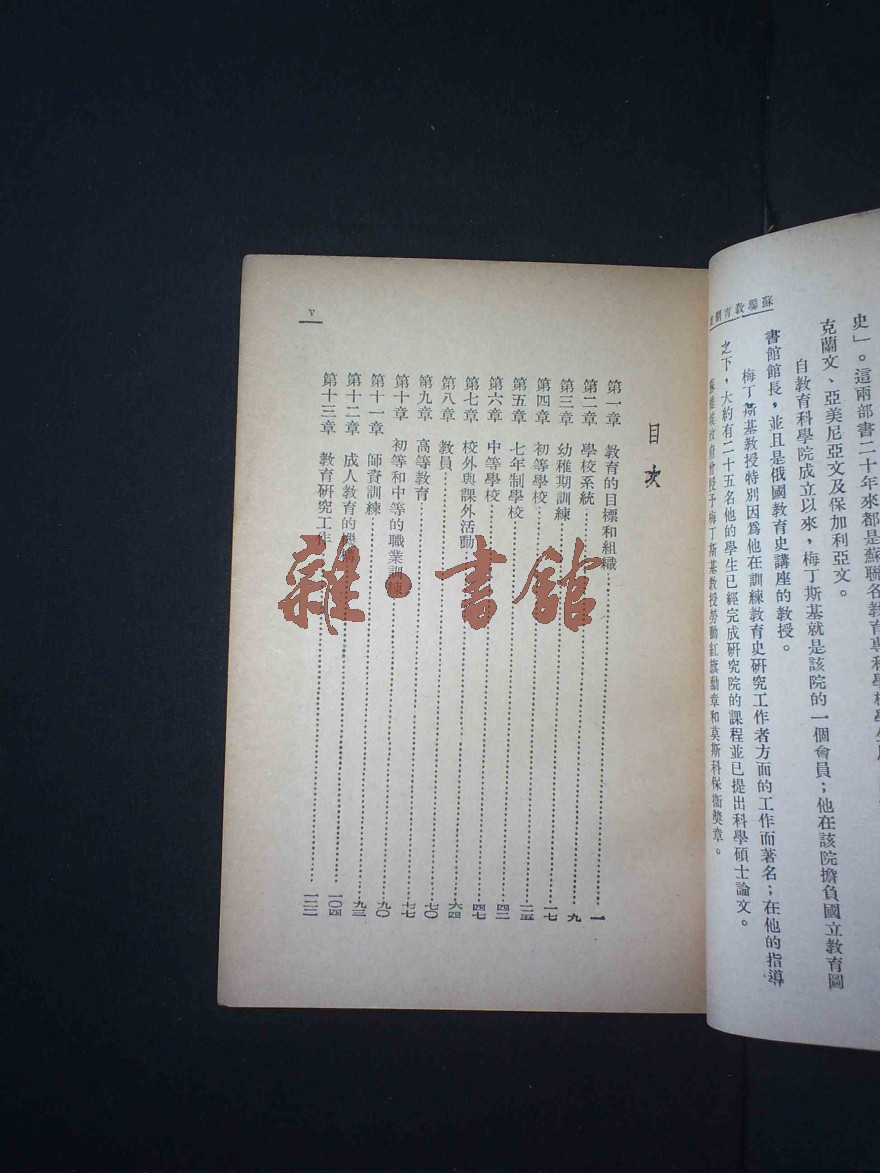 蘇聯教育
史」。這兩部書二十年來都是蘇聯各教育專科學校學生
克蘭文、亞美尼亞文及保加利亞文。
自教育科學院成立以來，梅丁斯基就是該院的一個會員；他在該院擔負國立教育圖
書館館長，並且是俄國教育史講座的教授。
梅丁斯基教授特別因爲他在訓練教育史研究工作者方面的工作而著名；在他的指導
之下，大約有二十五名他的學生已經完成研究院的課程並已提出科學碩士論文。
蘇維埃政府曾授予梅丁斯基教授勞動紅旗勳章和莫斯科保衛獎章。
目次
第一章 教育的目標和組織…………一
第二章 學校系統…………九
第三章 幼稚期訓練…………一七
第四章 初等學校…………二五
第五章 七年制學校…………
第六章 中等學校…………四二
第七章 校外與課外活動…………四七
第八章 教員…………六四
第九章 高等教育…………七〇
第十章 初等和中等的職業訓練…………七七
第十一章 師資訓練…………九〇
第十二章 成人教育的機…………
第十三章 教育研究工作…………
一〇四
v
雜·書館